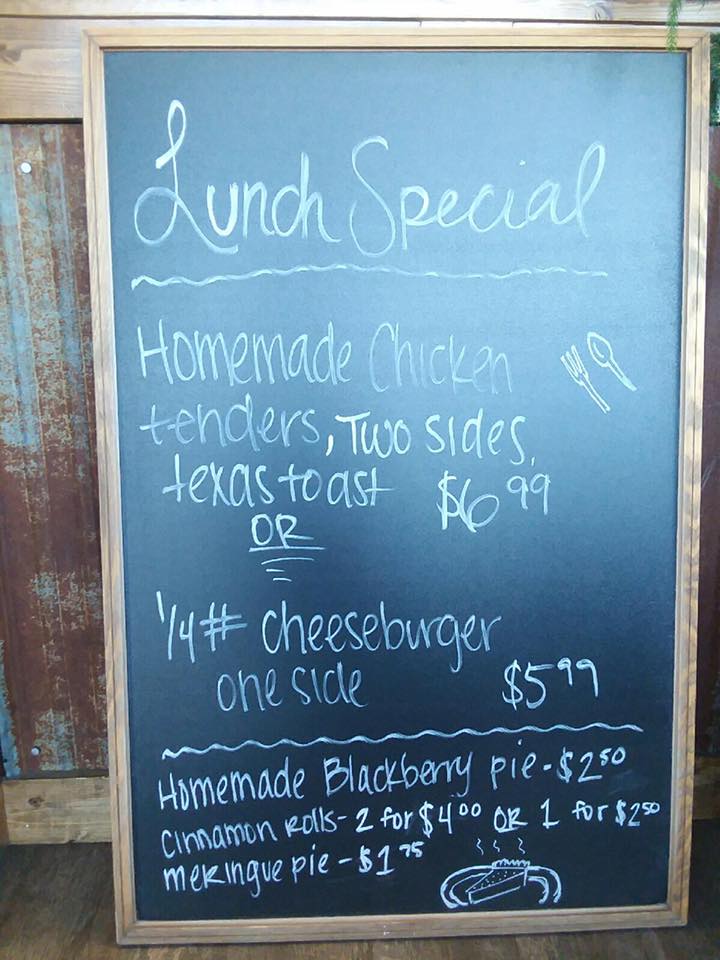 Lunch Special
Homemade Chicken
tenders, Two sides,
texas toast $6.99
OR
1/4# cheeseburger
one side $5.99
Homemade Blackberry pie - $2.50
Cinnamon Rolls - 2 for $4.00 OR 1 for $2.50
meringue pie - $1.75